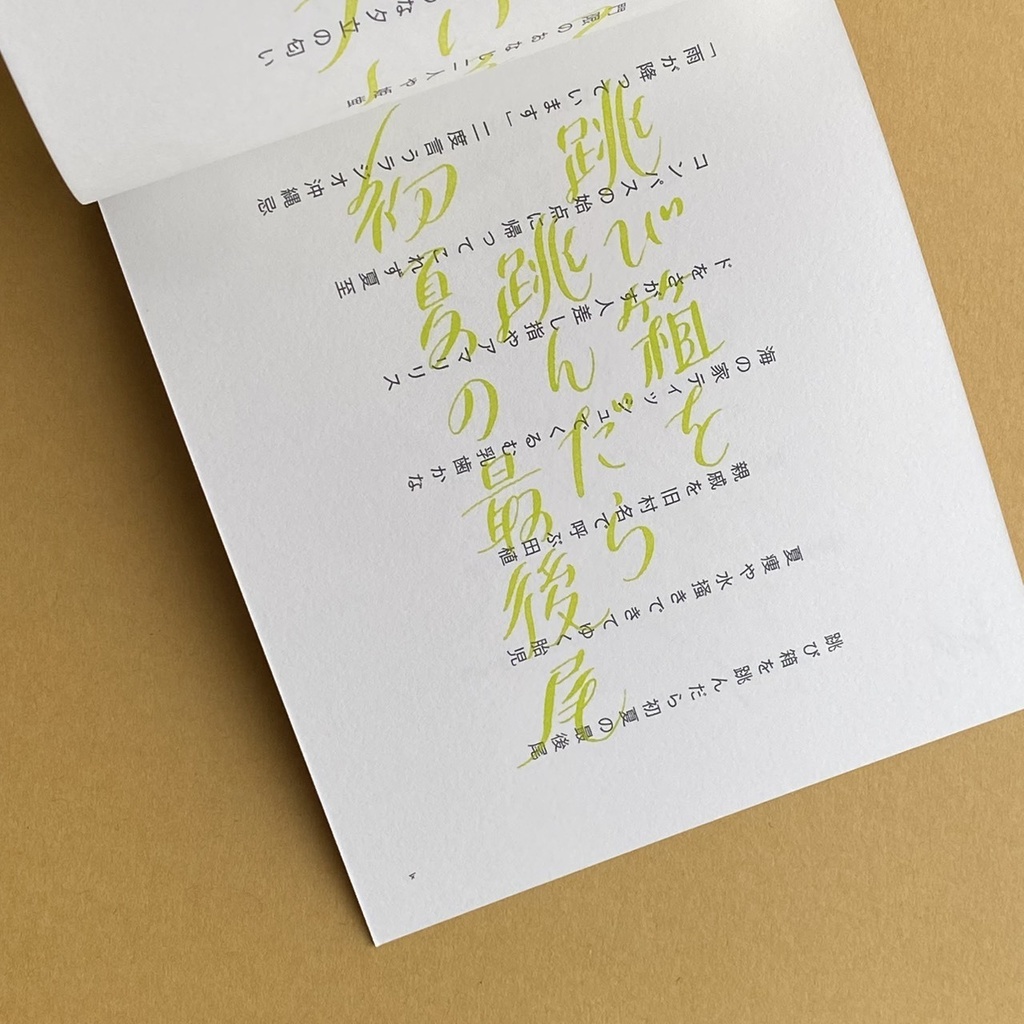 跳び箱を
跳んだら
初夏の最後尾
跳び箱を跳んだら初夏の最後尾
夏痩や水掻きできてゆく胎児
親戚を旧村名で呼ぶ田植
海の家ティッシュでくるむ乳歯かな
ドをさがす人差し指やアマリリス
コンパスの始点に帰ってこれず夏至
「雨が降っています」二度言うラジオ沖縄忌
のおなじ二人や
な夕立の匂い